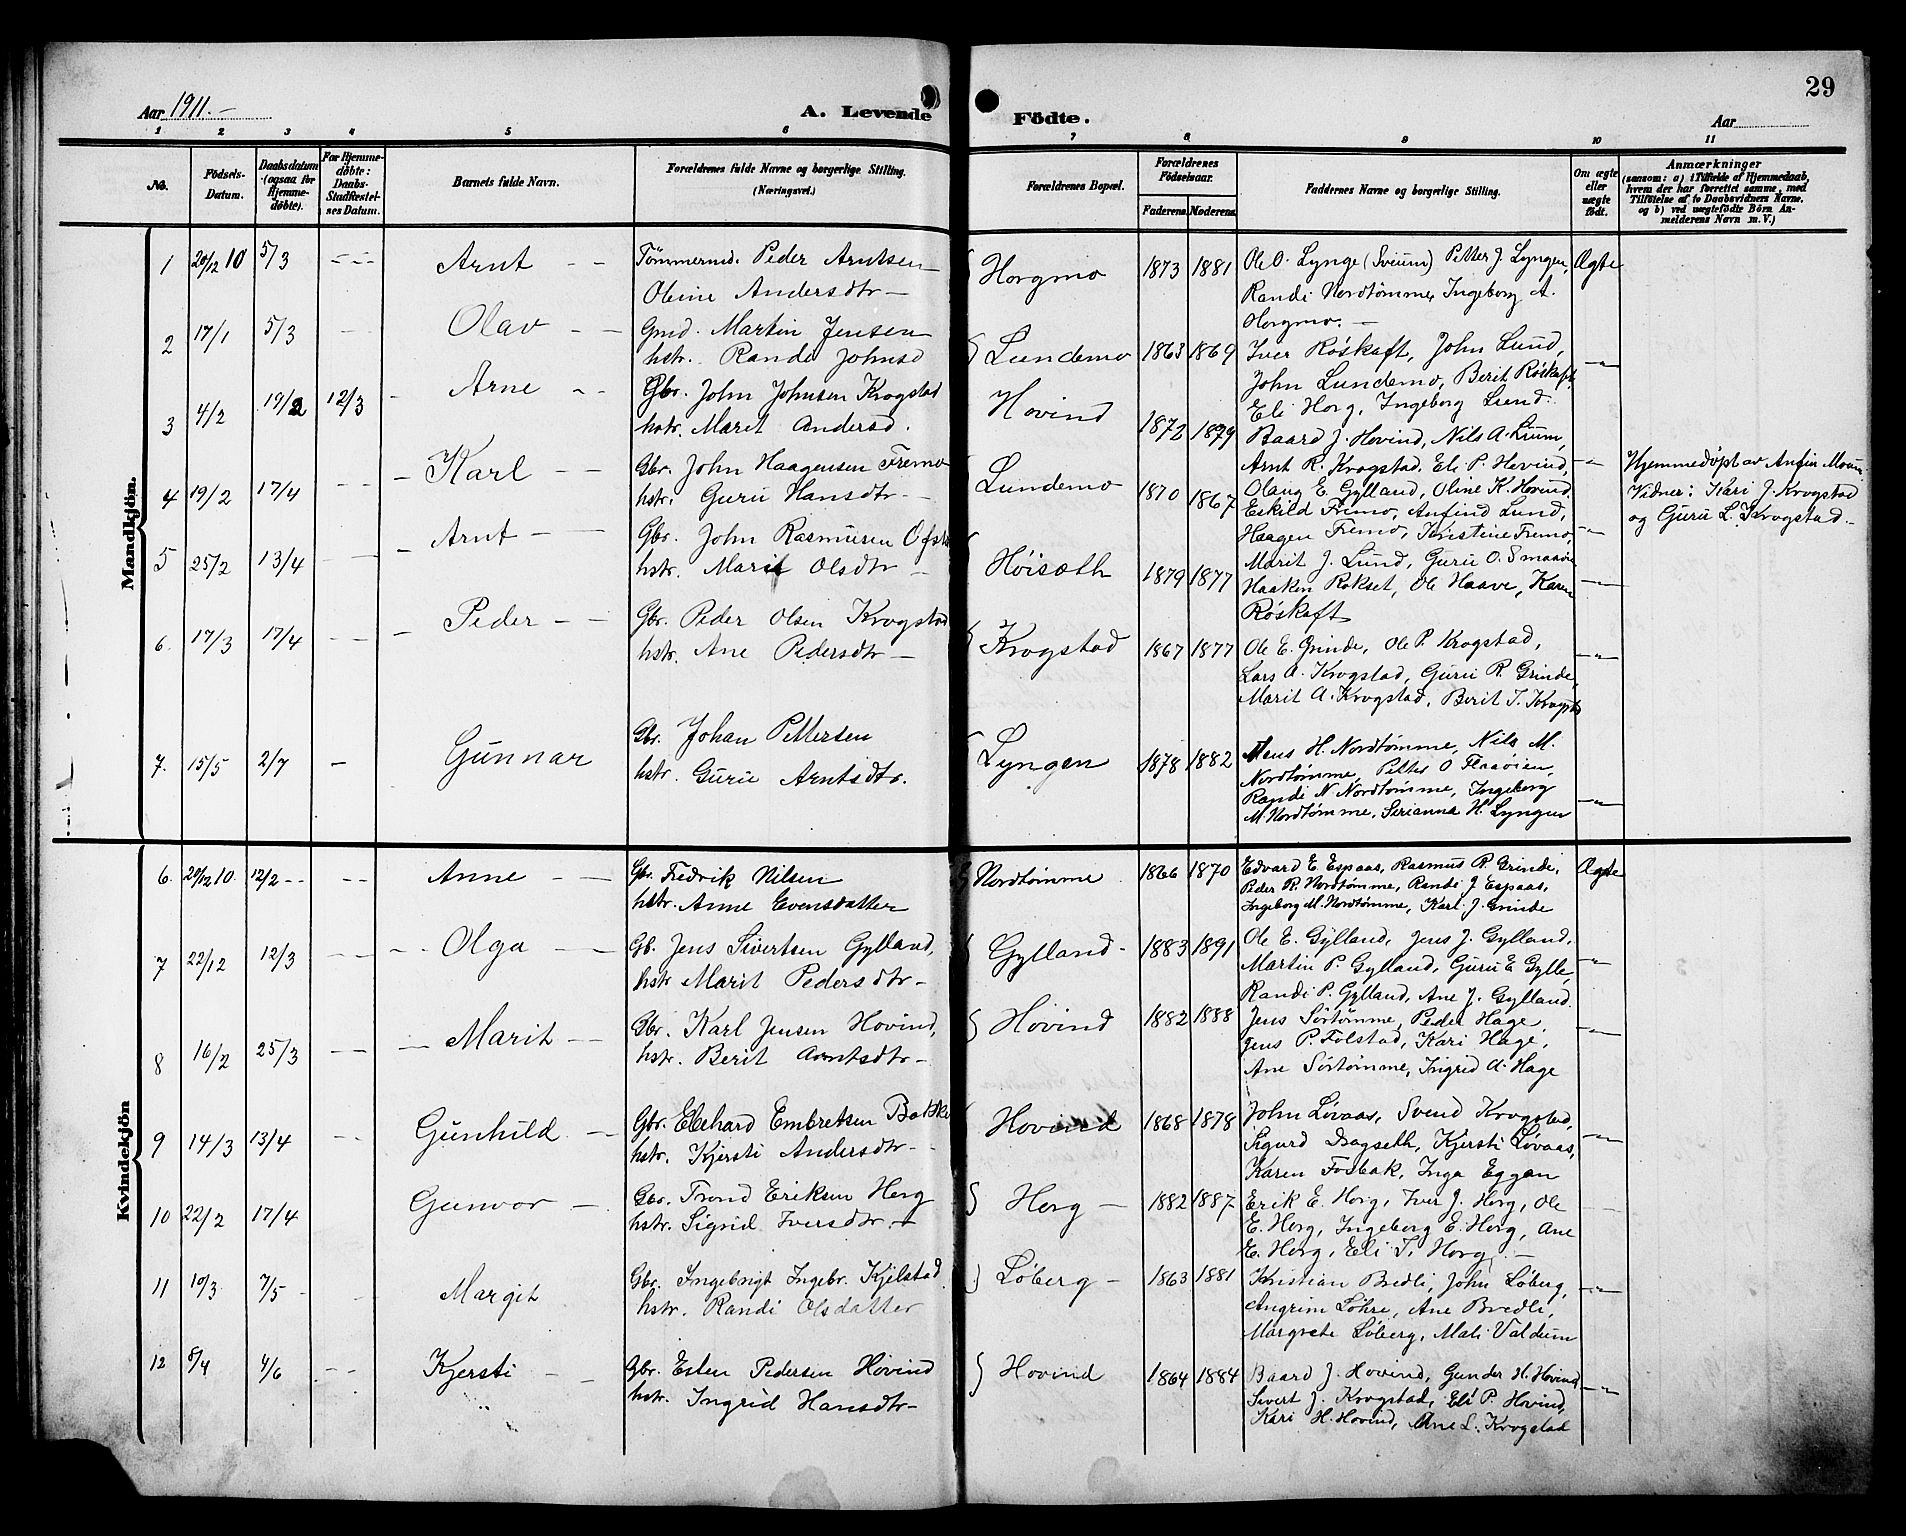 29
Aar 1911. –
A. Levende Födte.
Aar
1 2 3 4 5 6 7 8 9 10 11
No.
Födsels-Datum.
Daabsdatum (ogsaa for Hjemme-døbte).
For Hjemme-døbte: Daabs-Stadfæstel-ses Datum.
Barnets fulde Navn.
Forældrenes fulde Navne og borgerlige Stilling. (Næringsvei.)
Forældrenes Bopæl.
Forældrenes Födselsaar.
Faderens. Moderens.
Faddernes Navne og borgerlige Stilling.
Om ægte eller uægte født.
Anmærkninger
(saasom: a) i Tilfælde af Hjemmedaab,
hvem der har forrettet samme, med
Tilføielse af to Daabsvidners Navne.
og b) ved uægtefødte Börn An-
melderens Navn m. V.)
Mandkjön.
1 20/12 10 5/3 - - - Arnt - - Tömmermd. Peder Arntsen Horgmo 1873 1881 Ole O. Lynge (Sveium) Petter J. Lyngen, Ægte
Oline Andersdtr – Randi Nordtømme, Ingeborg A.
Horgmo. –
2 17/1 5/3 - - Olav - - Gmd. Martin Jensen Lundemo 1863 1869 Iver Röskaft, John Lund, - " -
hstr. Randi Johnsd John Lundemo, Berit Röskaft
Eli Horg, Ingeborg Lund.
3 4/2 19/2 12/3 - Arne - - Gbr. John Johnsen Krogstad Hovind 1872 1879 Baard J. Hovind, Nils A. Lium, - " -
hstr. Marit Andersd. Arnt R. Krogstad, Eli P. Hovind,
Olaug E. Gylland, Oline K. Hovind
Hjemmedöpt av Anfin Moum
Vidner: Kari J. Krogstad
og Guru L. Krogstad –
4 19/2 17/4 - - - Karl - - Gbr. John Haagensen Fremo Lundemo 1870 1867 Eskild Fremo, Anfind Lund, - " -
hstr. Guru Hansdtr - Haagen Fremo, Kristine Fremo,
Marit J. Lund, Guru O. Smaaöi
5 25/2 13/4 - - - Arnt - Gbr. John Rasmusen Ofst Höisæth 1879 1877 Haaken Rokset, Ole Haave, Karen - " -
hstr. Marit Olsdtr - Röskaft
6. 17/3 17/4 - - - Peder - - Gbr. Peder Olsen Krogstad Krogstad 1867 1877 Ole E. Grinde, Ole P. Krogstad, - " -
hstr. Ane Pedersdtr – Lars A. Krogstad, Guru R. Grinde,
Marit A. Krogstad, Berit T. Krogsta
7. 15/5 2/7 - Gunnar Gbr. Johan Pettersen Lyngen 1878 1882 Mens H. Nordtømme, Nils M. - " -
hstr. Guru Arntsdtr. Nordtømme, Petter O Flaaöien,
Randi N. Nordtømme, Ingeborg
M. Nordtømme, Serianna H. Lyngen
Kvindekjön
6. 20/12 10. 12/2 - - - - Anne - - Gbr. Fredrik Nilsen Nordtømme 1866 1870 Edvard E. Espaas, Rasmus P. Grinde, Ægte
hstr. Anne Evensdatter Peder R. Nordtømme, Randi J Espaas,
Ingeborg M. Nordtømme, Karl J. Grinde
7 22/12 12/3 - - - - Olga - - Gb. Jens Sivertsen Gylland, Gylland - 1883 1891 Ole E. Gylland, Jens J. Gylland, - " -
hstr Marit Pedersdtr – Martin P. Gylland, Guru E Gylle,
Randi P. Gylland, Ane J. Gylland.
8 16/2 25/3 - - - Marit - - Gbr. Karl Jensen Hovind, Hovind 1882 1888 Jens Sörtømme, Peder Hage, - " -
hstr. Berit Arntsdtr – Jens P. Folstad, Kari Hage,
Ane Sörtømme, Ingrid A. Hage
9 14/3 13/4 - - Gunhild - Gbr. Edehard Embretsen Bakke Hovind 1868 1878 John Lövaas, Svend Krogstad, - " -
hstr. Kjersti Andersdtr - Sigurd Dragseth, Kjersti Lövaas,
Karen Fosbak, Inga Eggen
10 22/2 17/4 Gunvor - Gbr. Trond Eriksen Horg Horg – 1882 1887 Erik E. Horg, Iver J. Horg, Ole
hstr. Sigrid Iversdtr – E. Horg, Ingeborg E. Horg, Ane
E. Horg, Eli T. Horg. –
11 10/3 7/5 - Margit Gbr. Ingebrigt Ingebr. Kjelstad Löberg – 1863 1881 Kristian Bredli, John Löberg, - " -
hstr. Randi Olsdatter Angrim Löhre, Ane Bredli,
Margrete Löberg, Mali Valdum
12 8/4 4/6 - - Kjersti - - Gbr. Esten Pedersen Hovind Hovind 1864 1884 Baard J. Hovind, Gunder H. Hovind - " -
hstr. Ingrid Hansdtr – Sivert J. Krogstad, Eli P. Hovind,
Kari H. Hovind, Ane L. Krogstad